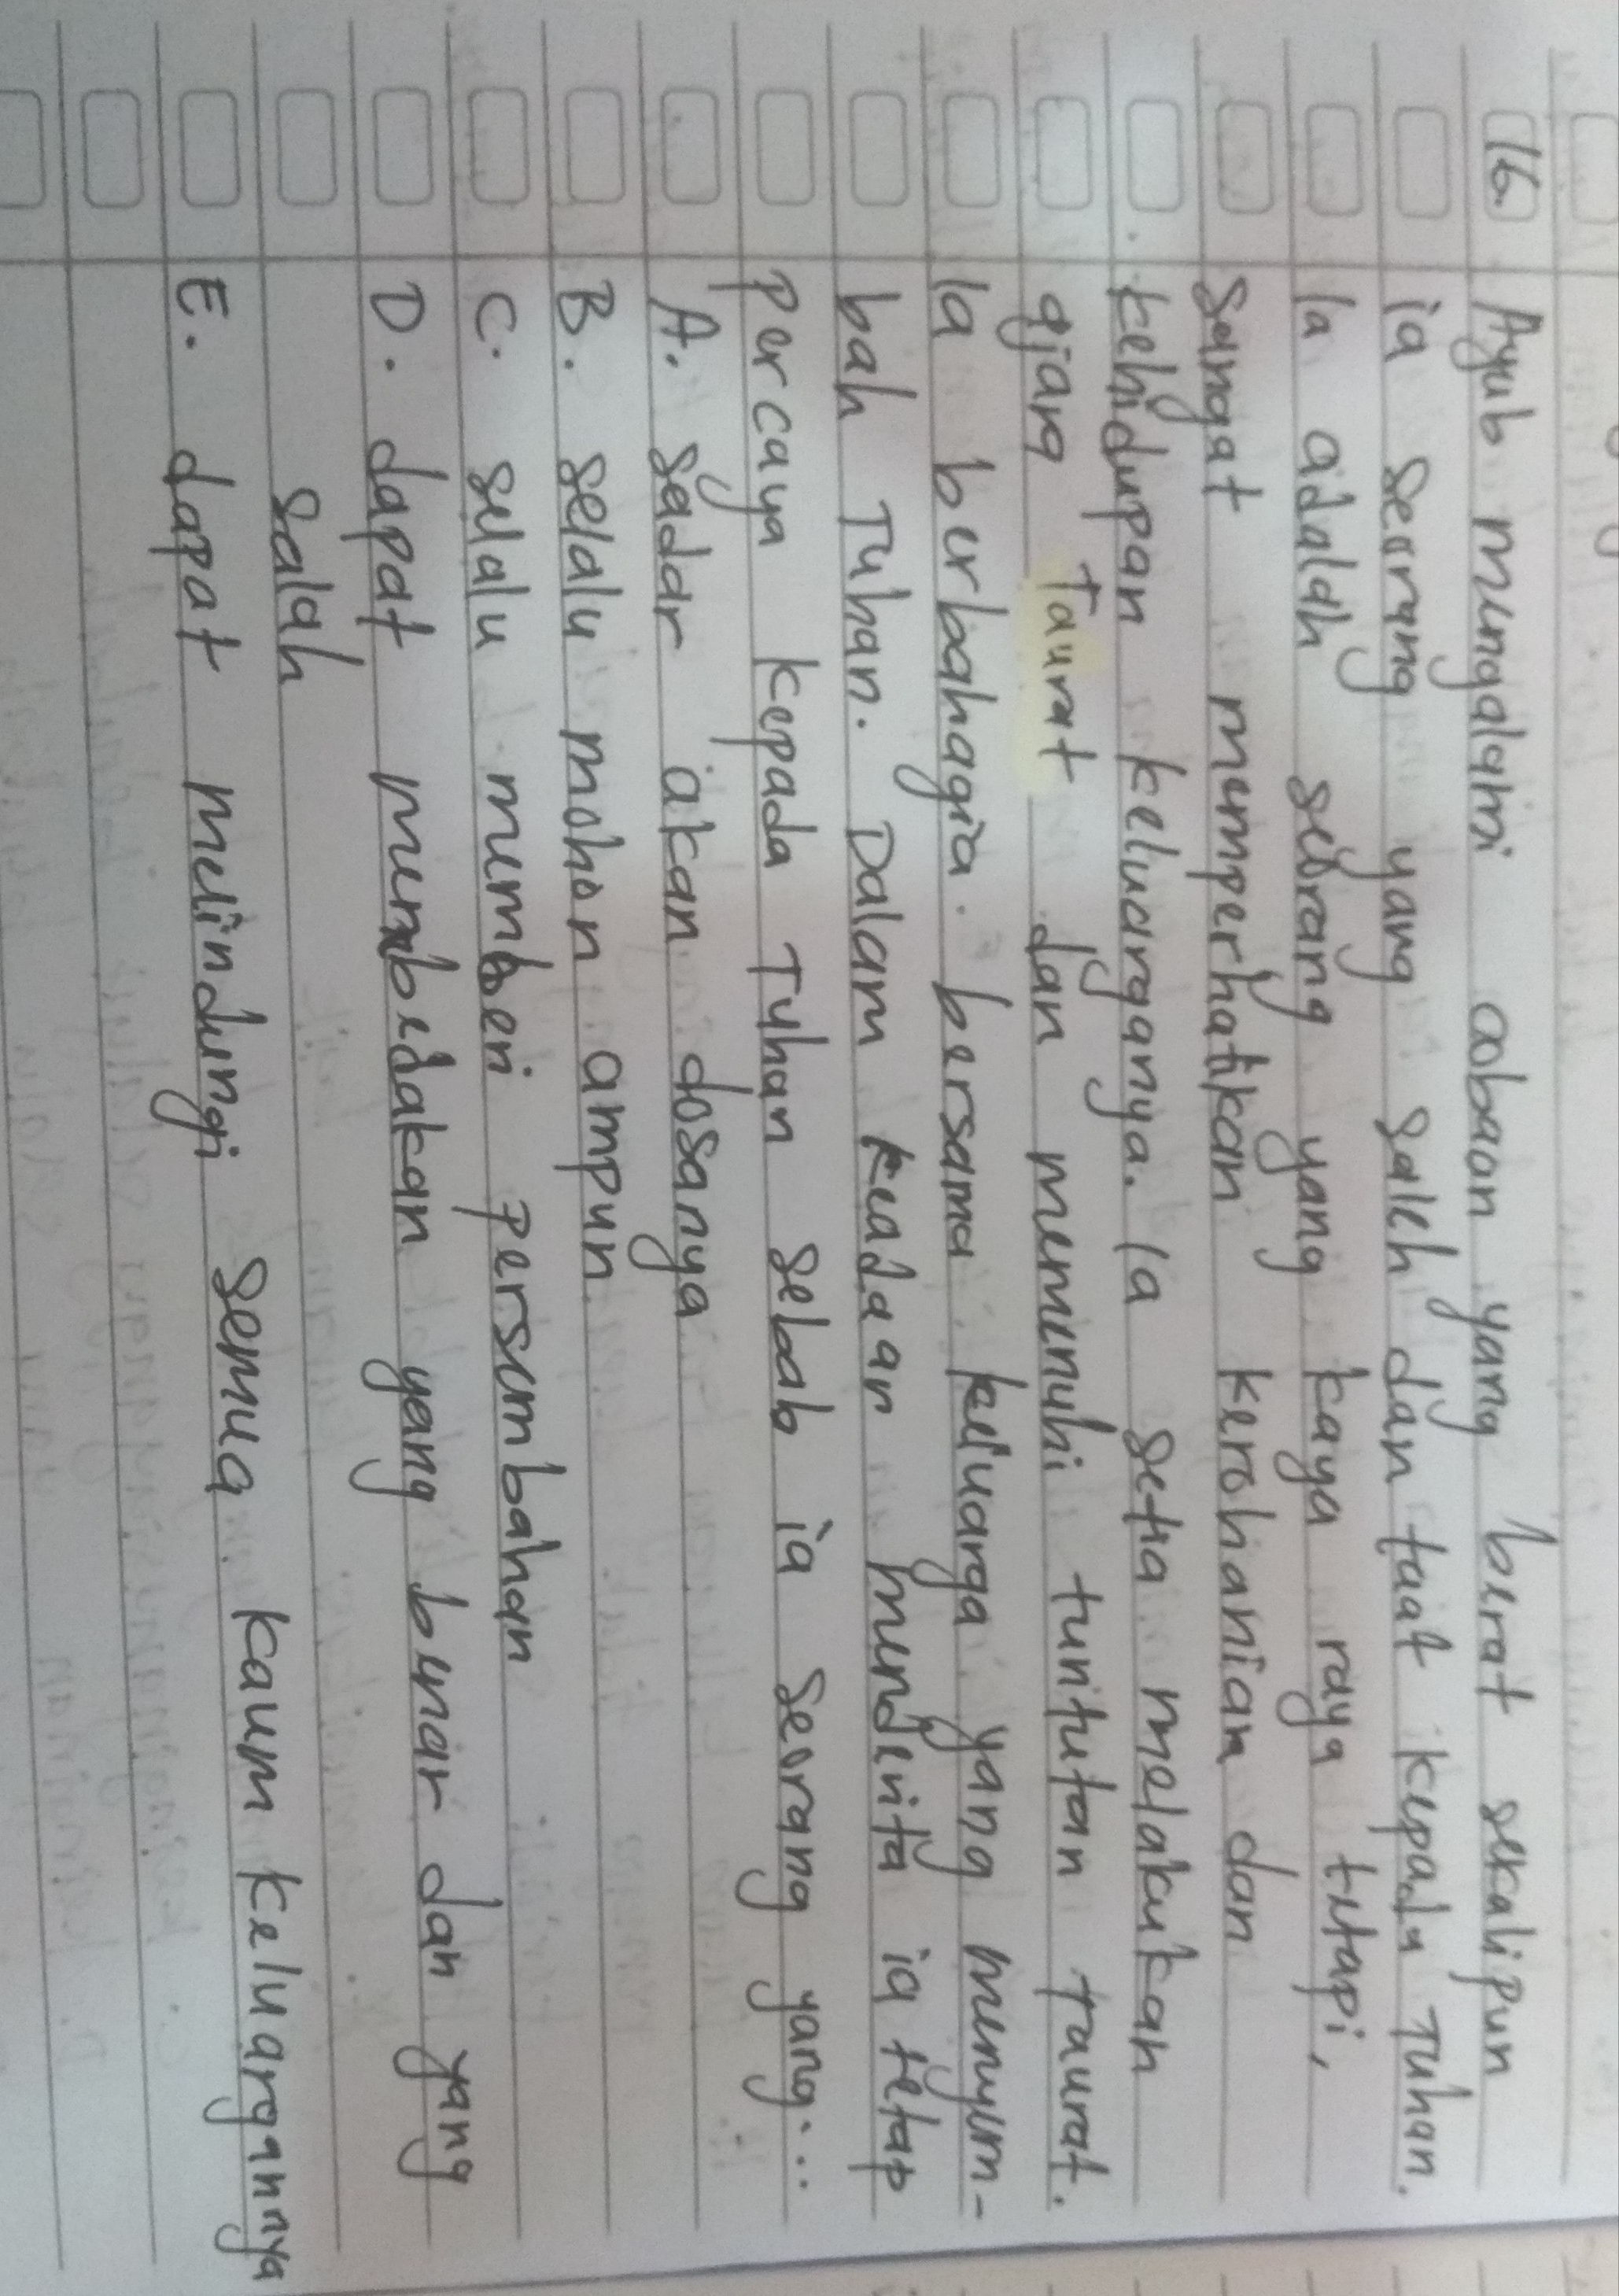 16. Ayub mengalami cobaan yang berat sekalipun
ia seorang yang saleh dan taat kepada Tuhan.
Ia adalah seorang yang kaya raya tetapi,
sangat memperhatikan kerohanian dan
kehidupan keluarganya. Ia setia melakukan
ajaran Taurat dan memenuhi tuntutan Taurat.
Ia berbahagia bersama keluarga yang menyem-
bah Tuhan. Dalam keadaan menderita ia tetap
percaya kepada Tuhan sebab ia seorang yang...
A. sadar akan dosanya
B. selalu mohon ampun
C. selalu memberi persembahan
D. dapat membedakan yang benar dan yang
salah
E. dapat melindungi semua kaum keluarganya